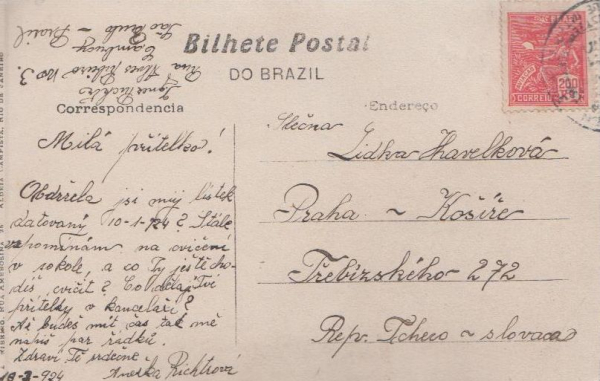 Bilhete Postal
DO BRAZIL
Correspondencia
Endereço
Rua Flores Ribeiro No 3.
Cambucy
Sao Paulo – Brasil
200
CORREIO
Milá přítelko!
Obdržela jsi můj lístek
datovaný 10-1-924? Stále
vzpomínám na cvičení
v sokole, a co Ty ještě cho-
díš cvičit? Co dělají Tví
přítelky v kanceláři?
Až budeš mít čas tak mě
napiš par řádků.
Zdraví Tě srdečně
Richtrová
18-3-924
Slečna
Lidka Havelková
Praha ~ Košíře
Třebízského 272
Rep. Tcheco ~ slovaca